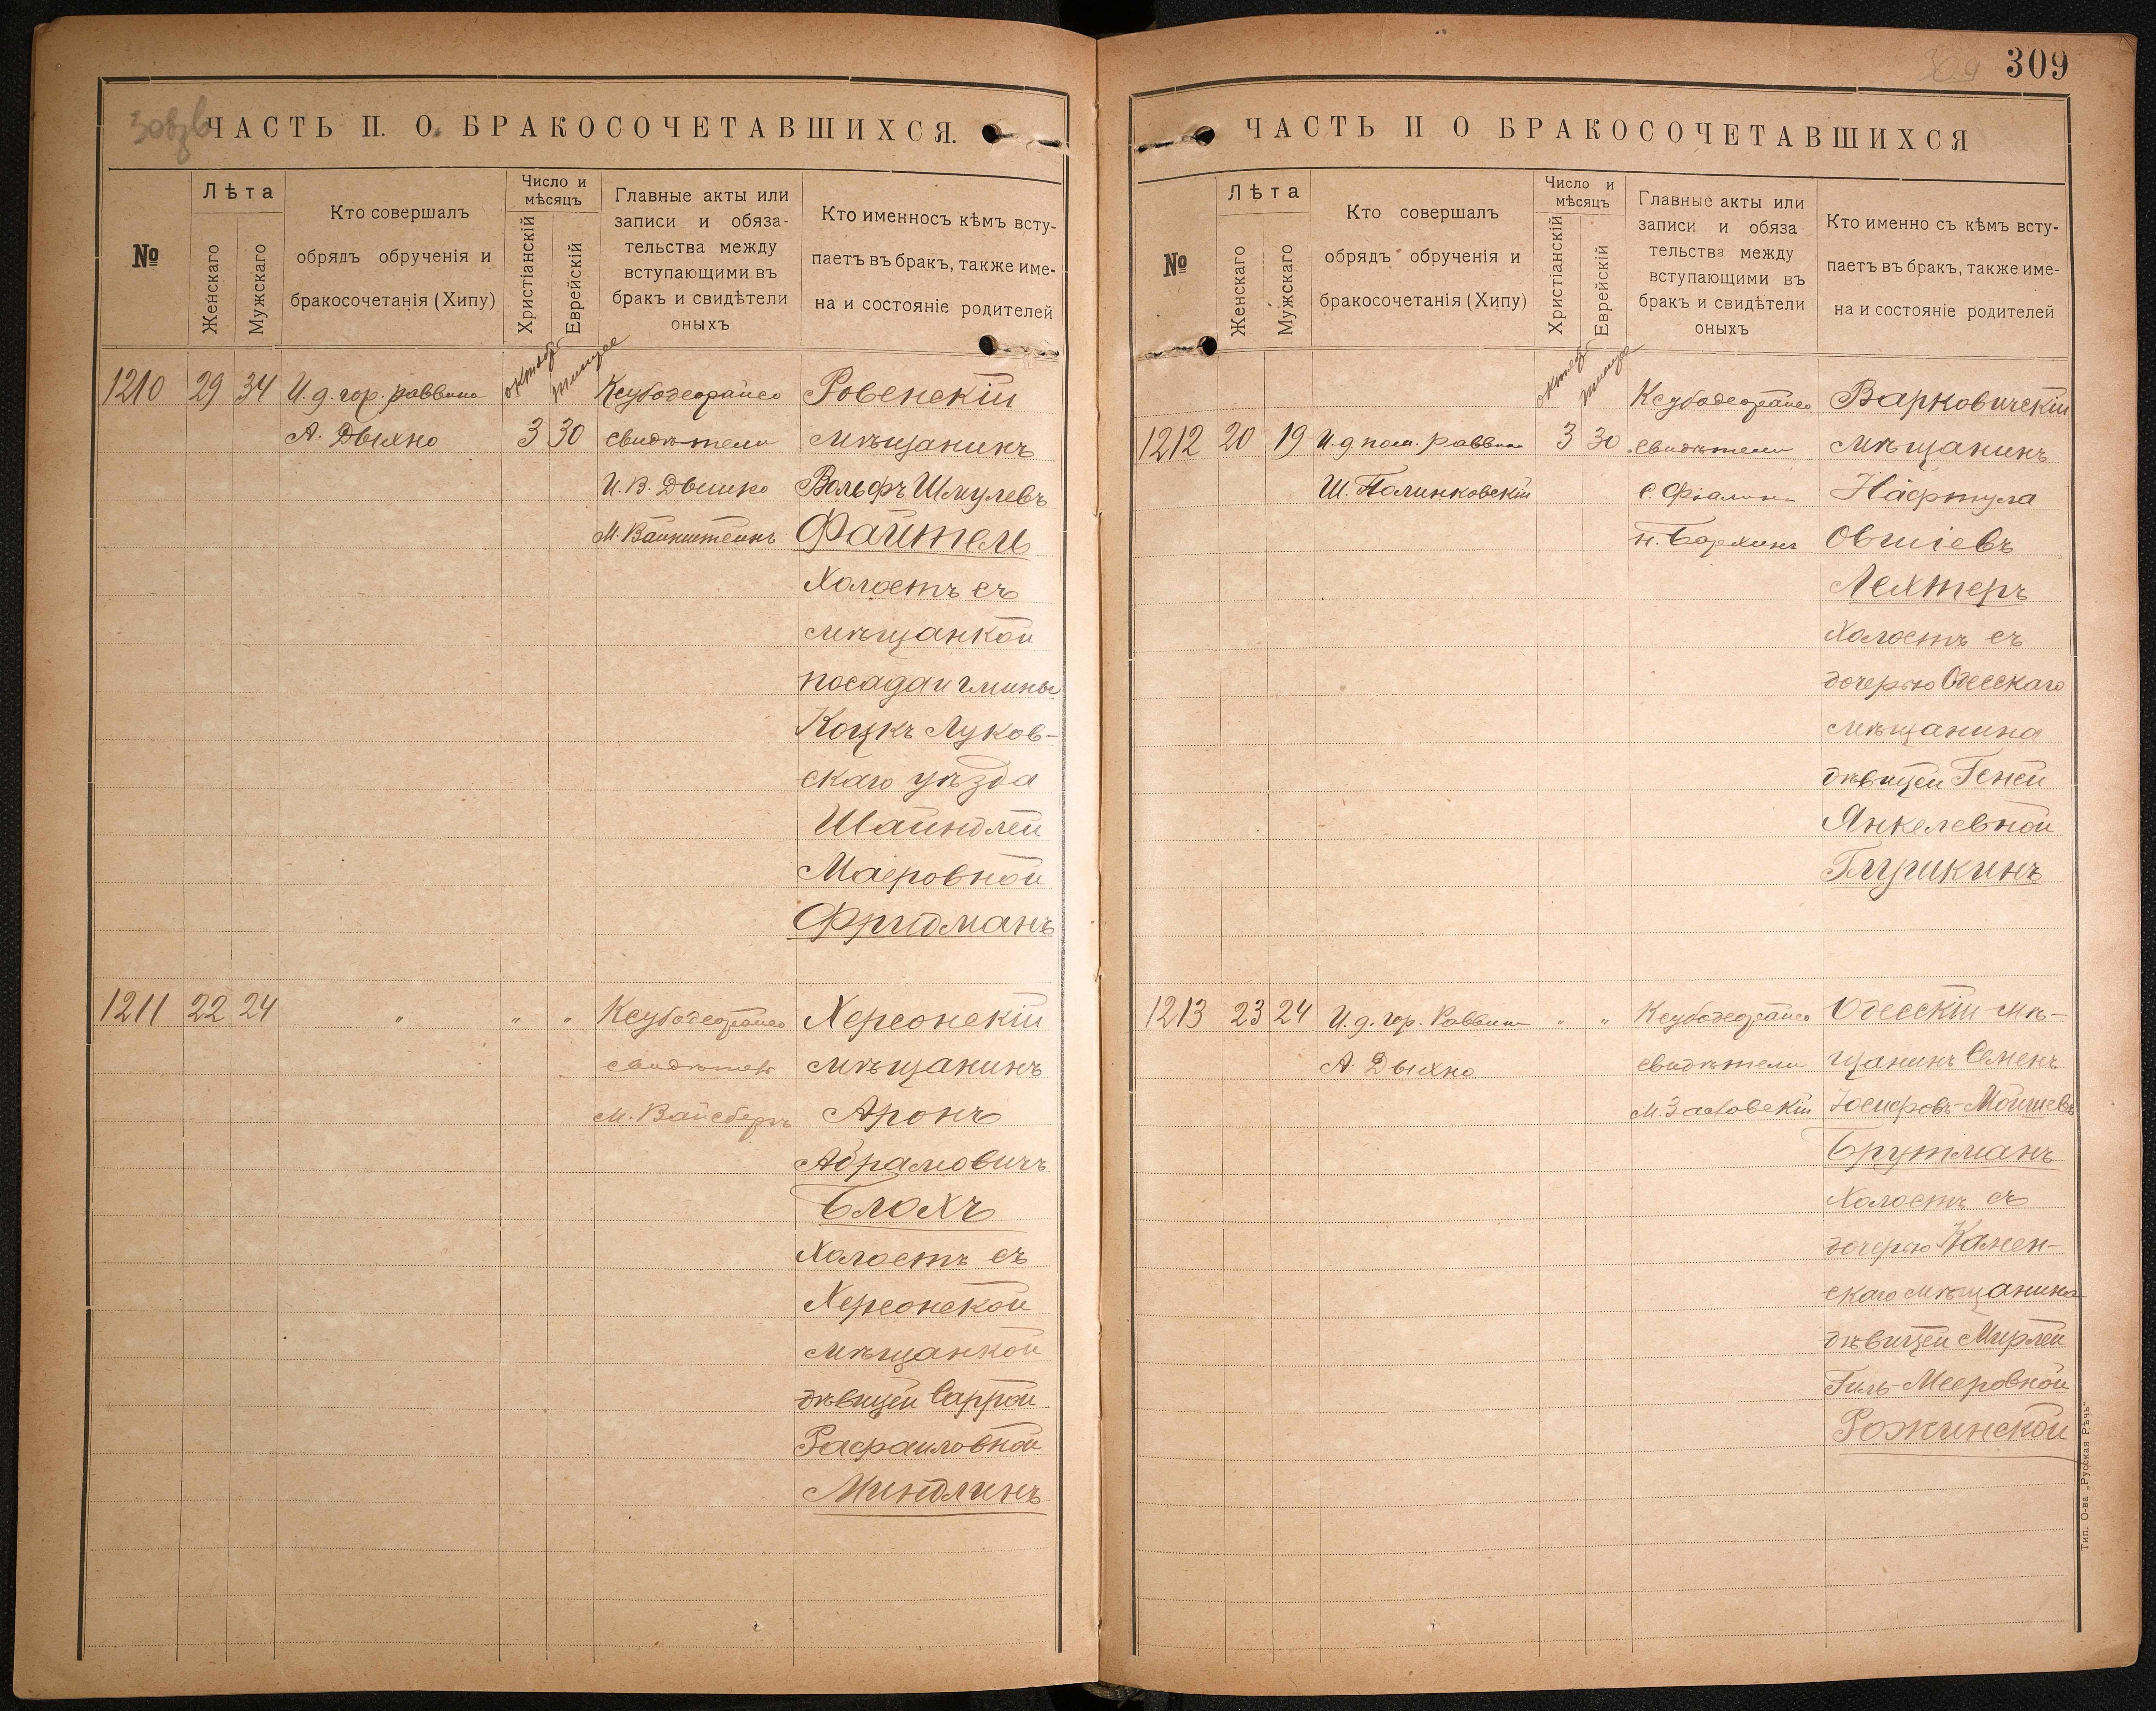 309
ЧАСТЬ II. О БРАКОСОЧЕТАВШИХСЯ.
№
Лѣта
Женскаго
Мужскаго
Кто совершалъ
обрядъ обрученія и
бракосочетанія (Хипу)
Число и
мѣсяцъ
Христіанскій
Еврейскій
Главные акты или
записи и обяза-
тельства между
вступающими въ
бракъ и свидѣтели
оныхъ
Кто именносъ кѣмъ всту-
паетъ въ бракъ, также име-
на и состояніе родителей
1210 29 34 И. д. гор. раввина
А. Дыхно
октябр
тишре
3 30
свидѣтели
И. В. Дышко
М. Вайнштейнъ
Ровенскій
мѣщанинъ
Вольфъ Шмулевъ
Файтель
Холостъ съ
мѣщанкой
посада и гмины
Коцкъ Луков-
скаго уѣзда
Шайндлей
Маеровной
Фридманъ
1211 22 24 " " "
свидѣтель
М. Вайсбергъ
Херсонскій
мѣщанинъ
Аронъ
Абрамовичъ
Блохъ
Холостъ съ
Херсонской
мѣщанкой
дѣвицей Саррой
Рафаиловной
Миндлинъ
ЧАСТЬ II О БРАКОСОЧЕТАВШИХСЯ
№
Лѣта
Женскаго
Мужскаго
Кто совершалъ
обрядъ обрученія и
бракосочетанія (Хипу)
Число и
мѣсяцъ
Христіанскій
Еврейскій
Главные акты или
записи и обяза
тельства между
вступающими въ
бракъ и свидѣтели
оныхъ
Кто именно съ кѣмъ всту-
паетъ въ бракъ, также име-
на и состояніе родителей
1212 20 19 И. д. пом. раввина
Ш. Полинковскій
октябр
тишре
3 30
свидѣтели
Варковичскій
мѣщанинъ
Нафтула
Овшіевъ
Лехтеръ
Холостъ съ
дочерью Одесскаго
мѣщанина
дѣвицей Геней
Янкелевной
Глушкинъ
1213 23 24 И. д. гор. Раввина " "
А. Дыхно
свидѣтели
М. Заславскій
Одесскій мѣ-
щанинъ Семенъ
Іосифовъ-Мойшевъ
Брутманъ
Холостъ съ
дочерью Камен-
скаго мѣщанина
дѣвицей Мирлей
Гиль-Мееровной
Рожинской
Тип. О-ва „Русская Рѣчь"